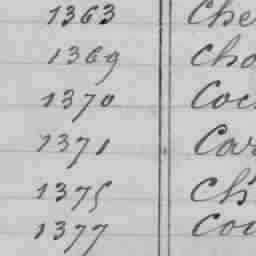 1363 Che
1369 Cho
1370 Coc
1371 Car
1375 Ch
1377 Cou